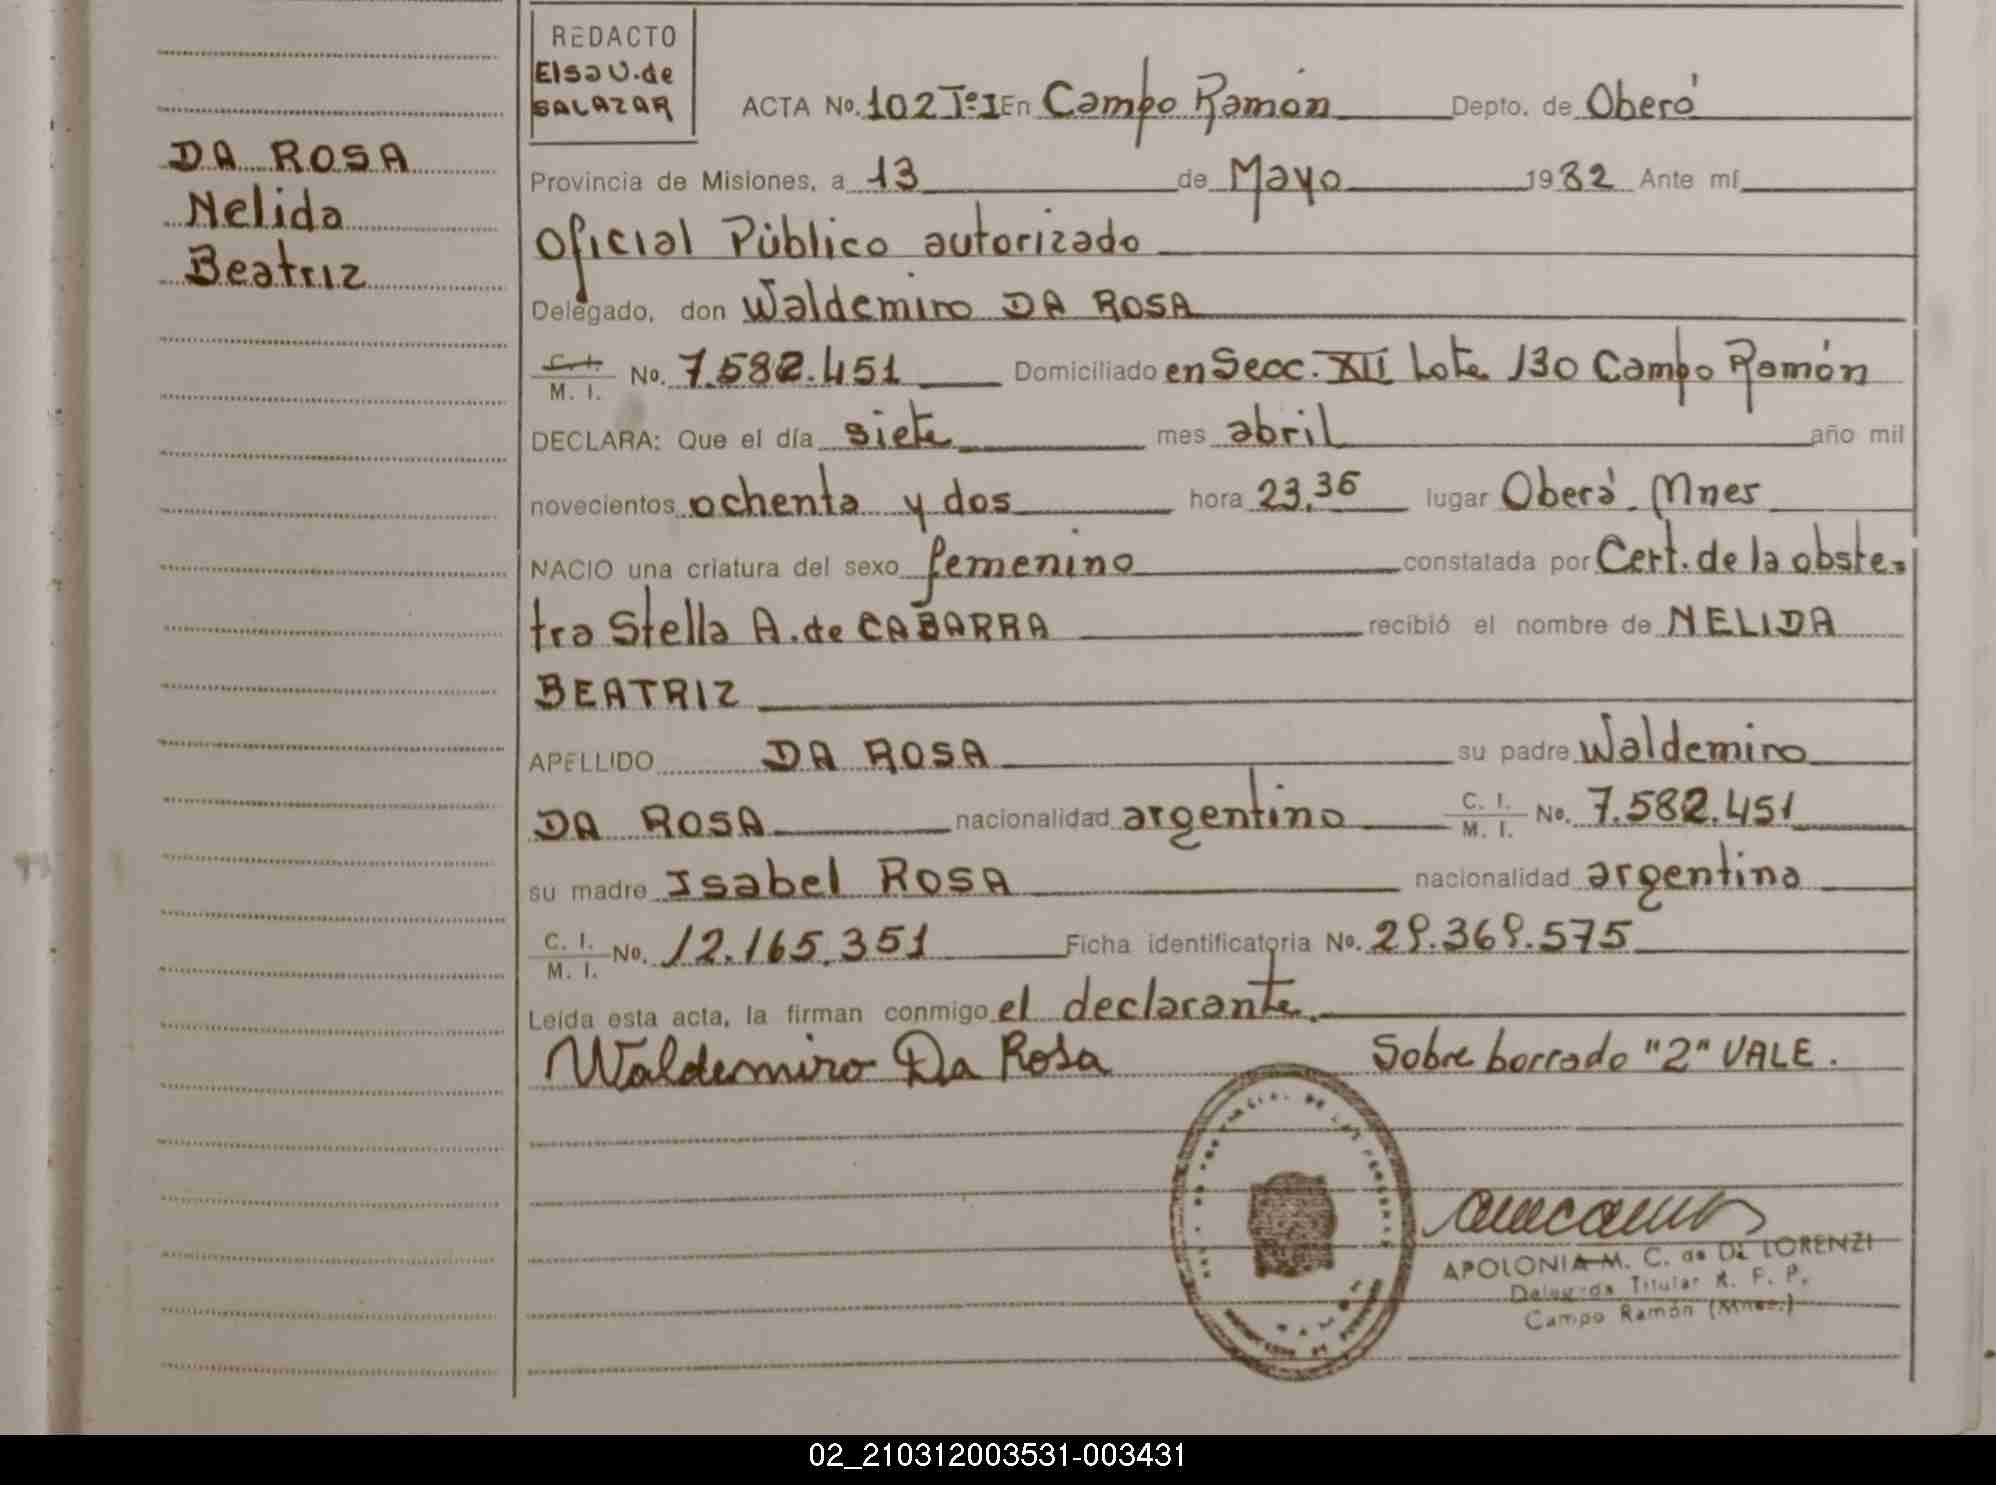 REDACTO
Elsa V. de
SALAZAR
ACTA No. 102 Tº I En Campo Ramón Depto. de Oberá
DA ROSA
Nelida
Beatriz
Provincia de Misiones, a 13 de Mayo 1982 Ante mí
Oficial Público autorizado
Delegado, don Waldemiro DA ROSA
C. I. M. I. No. 7.582.451 Domiciliado en Secc. XII Lote 130 Campo Ramón
DECLARA: Que el día siete mes abril año mil
novecientos ochenta y dos hora 23,35 lugar Oberá. Mnes
NACIO una criatura del sexo femenino constatada por Cert. de la obste-
tra Stella A. de CABARRA recibió el nombre de NELIDA
BEATRIZ
APELLIDO DA ROSA su padre Waldemiro
DA ROSA nacionalidad argentino C. I. M. I. No. 7.582.451
su madre Isabel ROSA nacionalidad argentina
C. I. M. I. No. 12.165.351 Ficha identificatoria No. 29.369.575
Leída esta acta, la firman conmigo el declarante.
Waldemiro Da Rosa Sobre borrado "2" VALE.
APOLONIA M. C. de Di LORENZI
Delegada Titular R. P. P.
Campo Ramón (Mnes.)
02_210312003531-003431